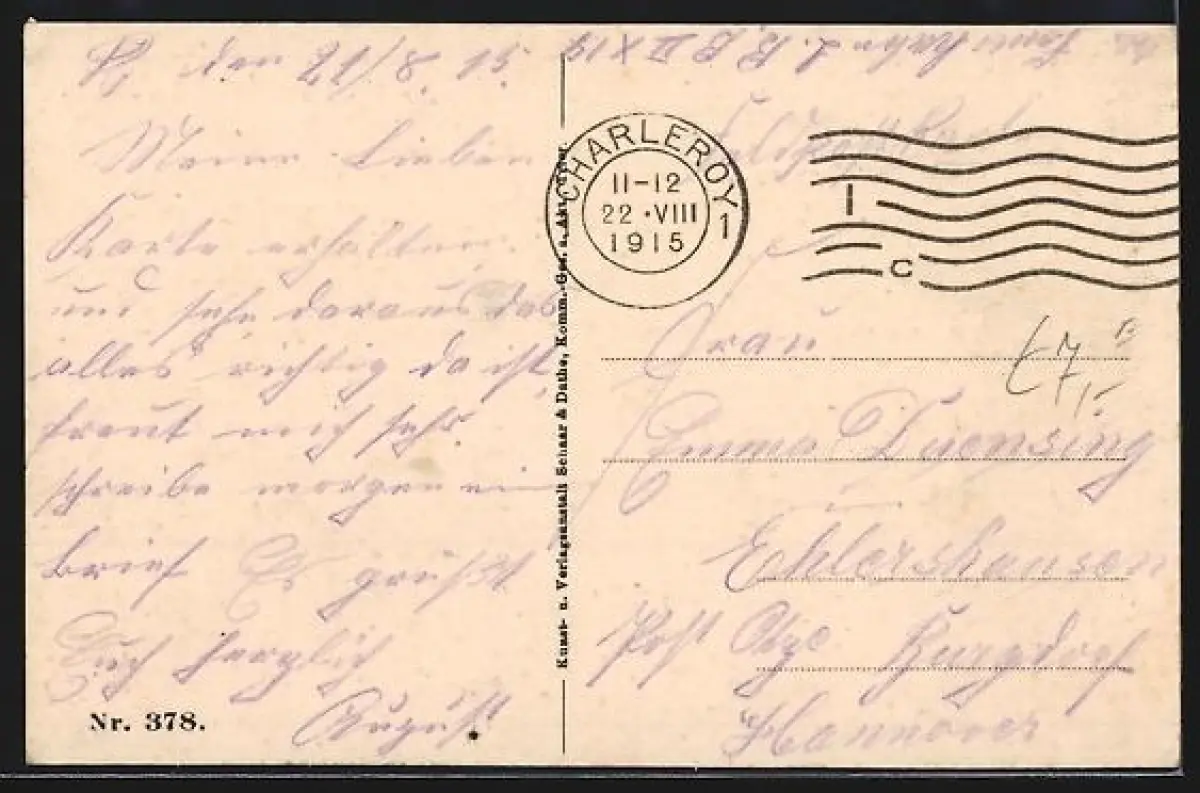 den 21/8.15.
Meine Lieben
Karte erhalten
und sehe daraus das
alles richtig da ist,
freut mich sehr
schreibe morgen ein
Brief Es grüßt
Euch herzlich
August
Nr. 378.
Kunst- u. Verlagsanstalt Schaar & Dathe, Komm.-Ges. a. Akt.
CHARLEROY 1
11-12
22 · VIII
1915
C
Frau
Emma Dyensing
Ehlershausen
Post Burgdorf
Hannover